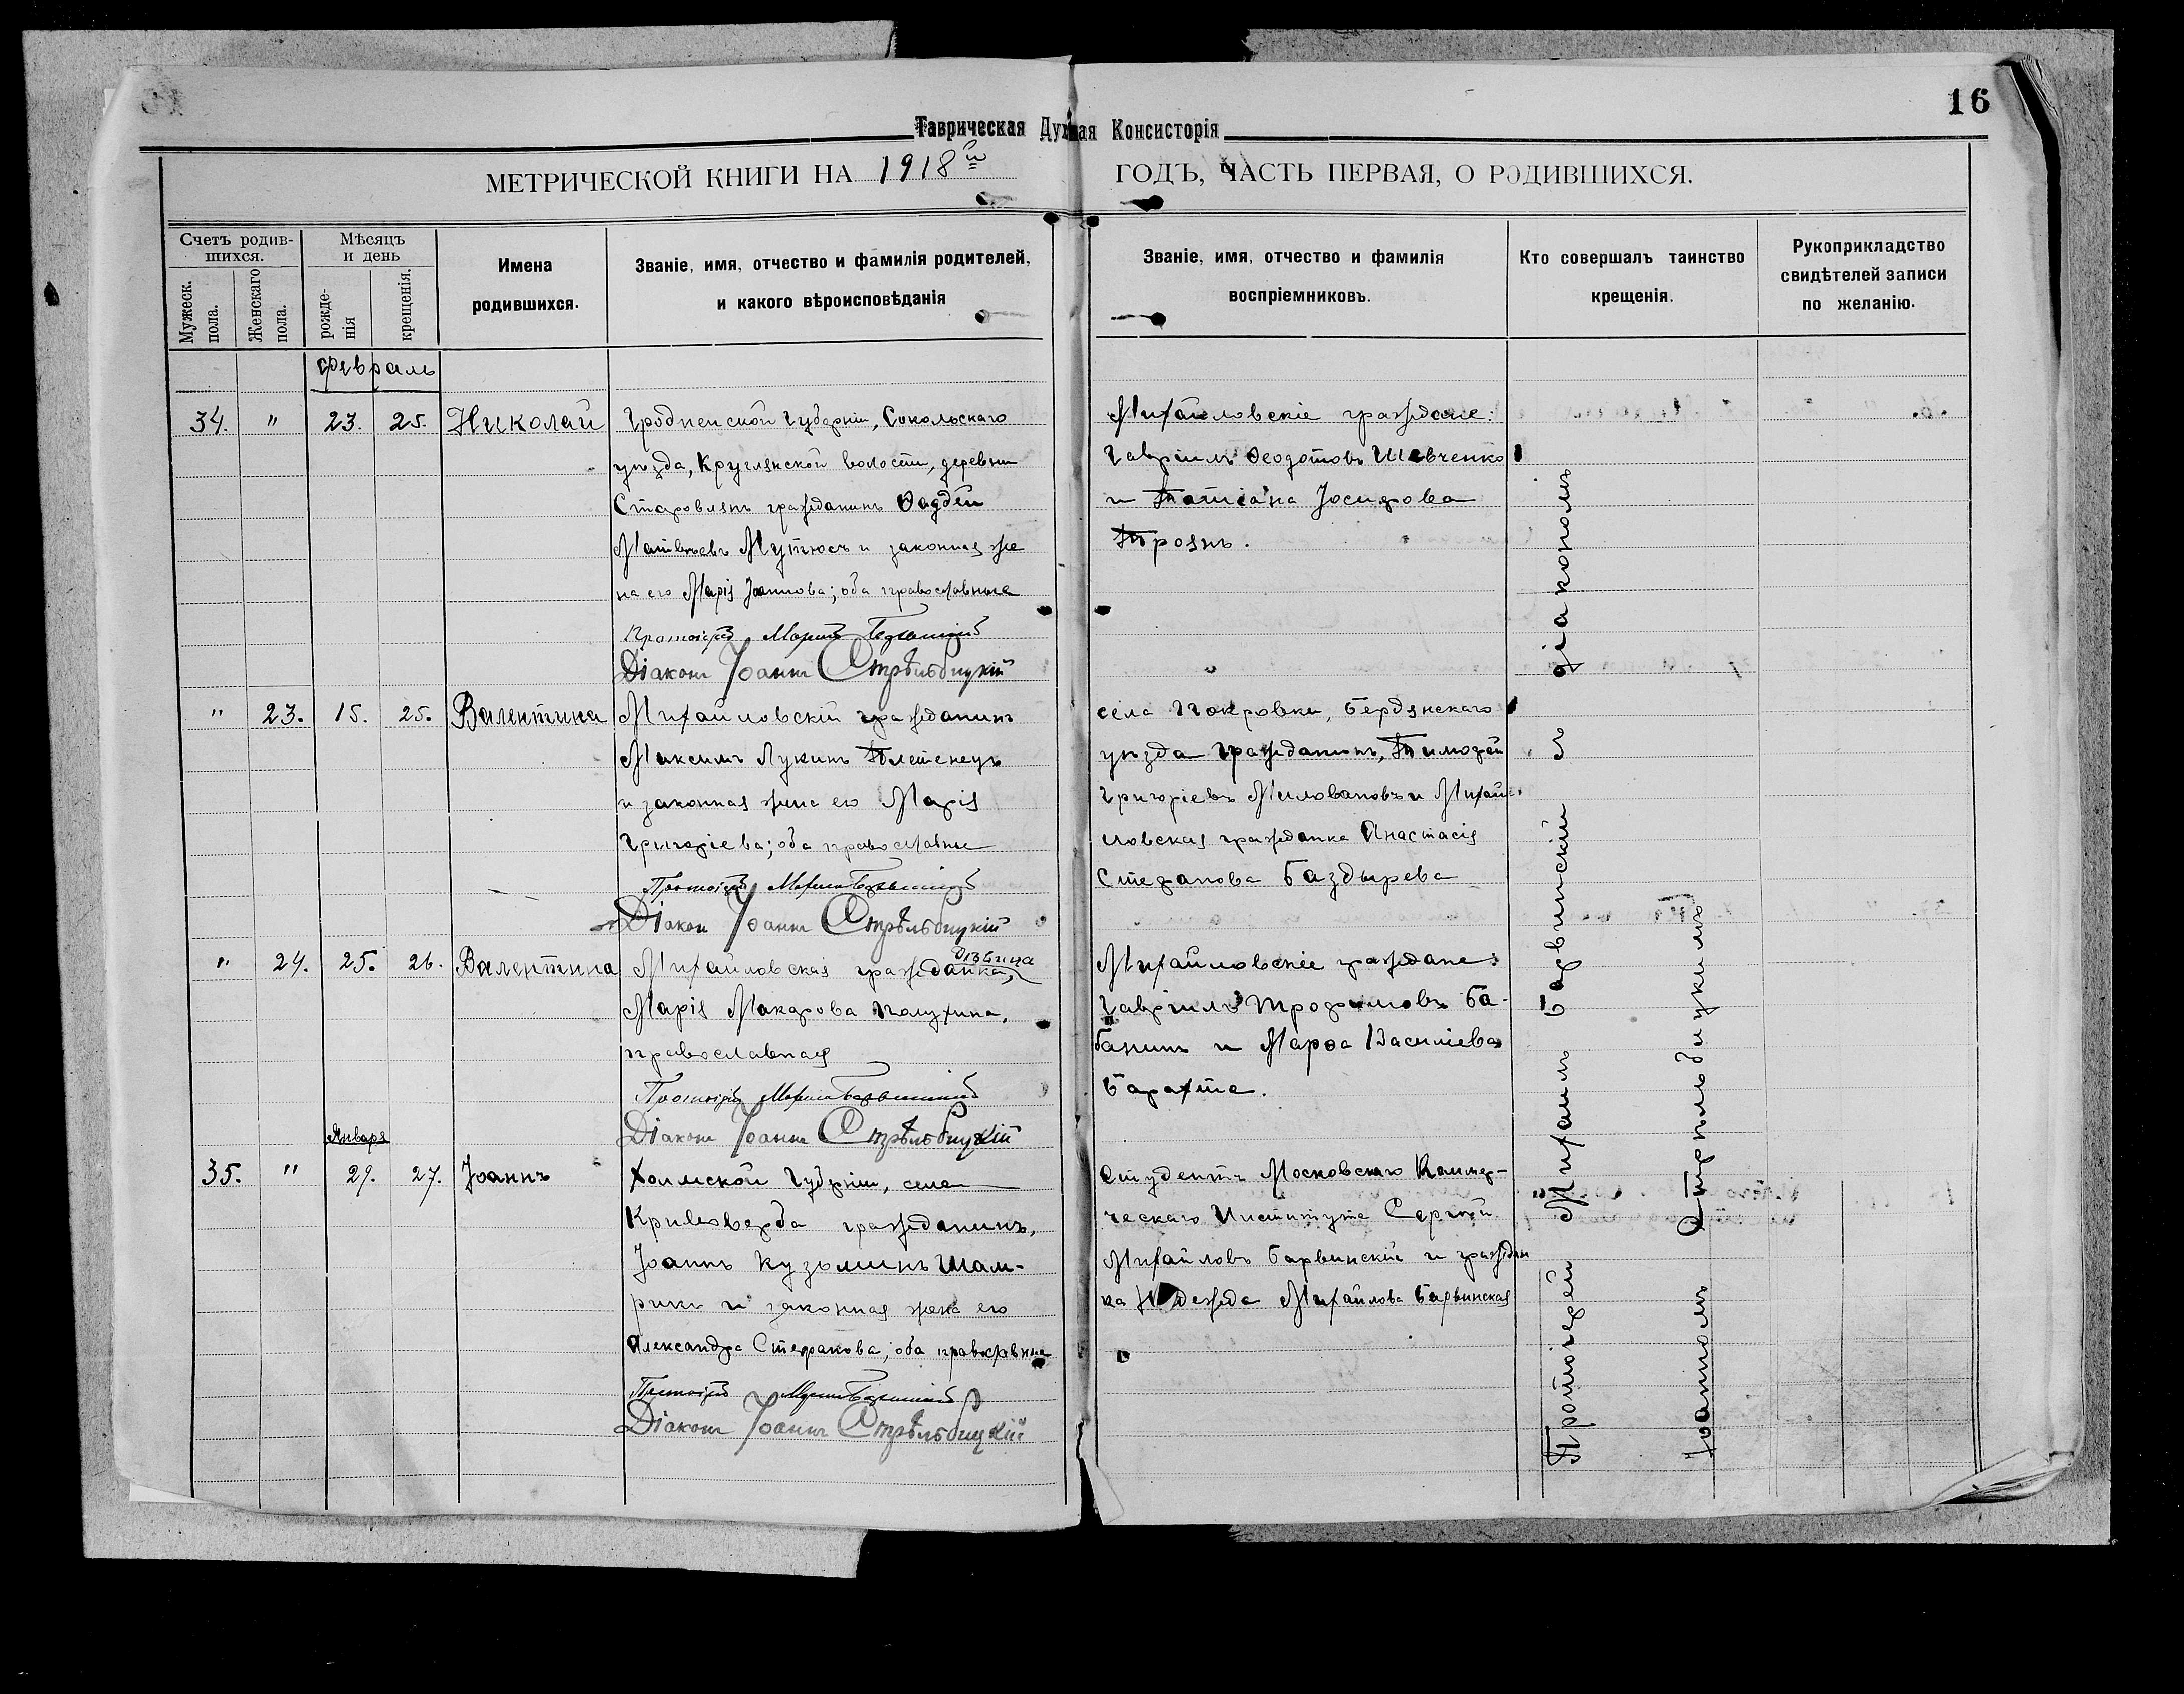 16
Таврическая Духная Консисторія
МЕТРИЧЕСКОЙ КНИГИ НА 1918й ГОДЪ, ЧАСТЬ ПЕРВАЯ, О РОДИВШИХСЯ.
Счетъ родив-
шихся.
Мужеск.
пола.
Женскаго
пола.
Мѣсяцъ
и день
рожде-
нія
крещенія.
Имена
родившихся.
Званіе, имя, отчество и фамилія родителей,
и какого вѣроисповѣданія
Званіе, имя, отчество и фамилія
воспріемниковъ.
Кто совершалъ таинство
крещенія.
Рукоприкладство
свидѣтелей записи
по желанію.
Февраль
34. " 23. 25. Николай
Гродненской Губерніи, Сокольскаго
уѣзда, Круглянской волости, деревни
гражданинъ Ѳаддей
Матвѣевъ Мутюсъ и законная же
на его Марія Іоаннова; оба православные
Протоіерей
Діаконъ Іоаннъ Стрѣльбицкій
Михайловскіе граждане:
Гавріилъ Ѳеодотовъ Шевченко
и Татіана Іосифова
Троянъ.
" 23. 15. 25. Валентина
Михайловскій гражданинъ
Максимъ Лукинъ Плетенецъ
и законная жена его Марія
Григоріева; оба православные
Протоіерей
Діаконъ Іоаннъ Стрѣльбицкій
села Покровки, Бердянскаго
уѣзда гражданинъ, Тимофей
Григоріевъ Миловановъ и Михай-
ловская гражданка Анастасія
Стефанова Баздырева
" 24. 25. 26. Валентина
дѣвица
Михайловская гражданка,
Марія Макарова Полухина,
православная
Протоіерей
Діаконъ Іоаннъ Стрѣльбицкій
Михайловскіе граждане:
Гавріилъ Трофимовъ Ба-
банинъ и Марѳа Василіева
Барахта.
Января
35. " 29. 27. Іоаннъ
Холмской Губерніи, села
Криловерба гражданинъ,
Іоаннъ Кузьминъ Шам-
рикъ и законная жена его
Александра Стефанова; оба православные
Протоіерей
Діаконъ Іоаннъ Стрѣльбицкій
Студентъ Московскаго Коммер-
ческаго Института Сергѣй
Михайловъ Барвинскій и граждан
ка Надежда Михайлова Барвинская
Протоіерей Михаилъ Барвинскій съ діакономъ
Іоанномъ Стрѣльбицкимъ